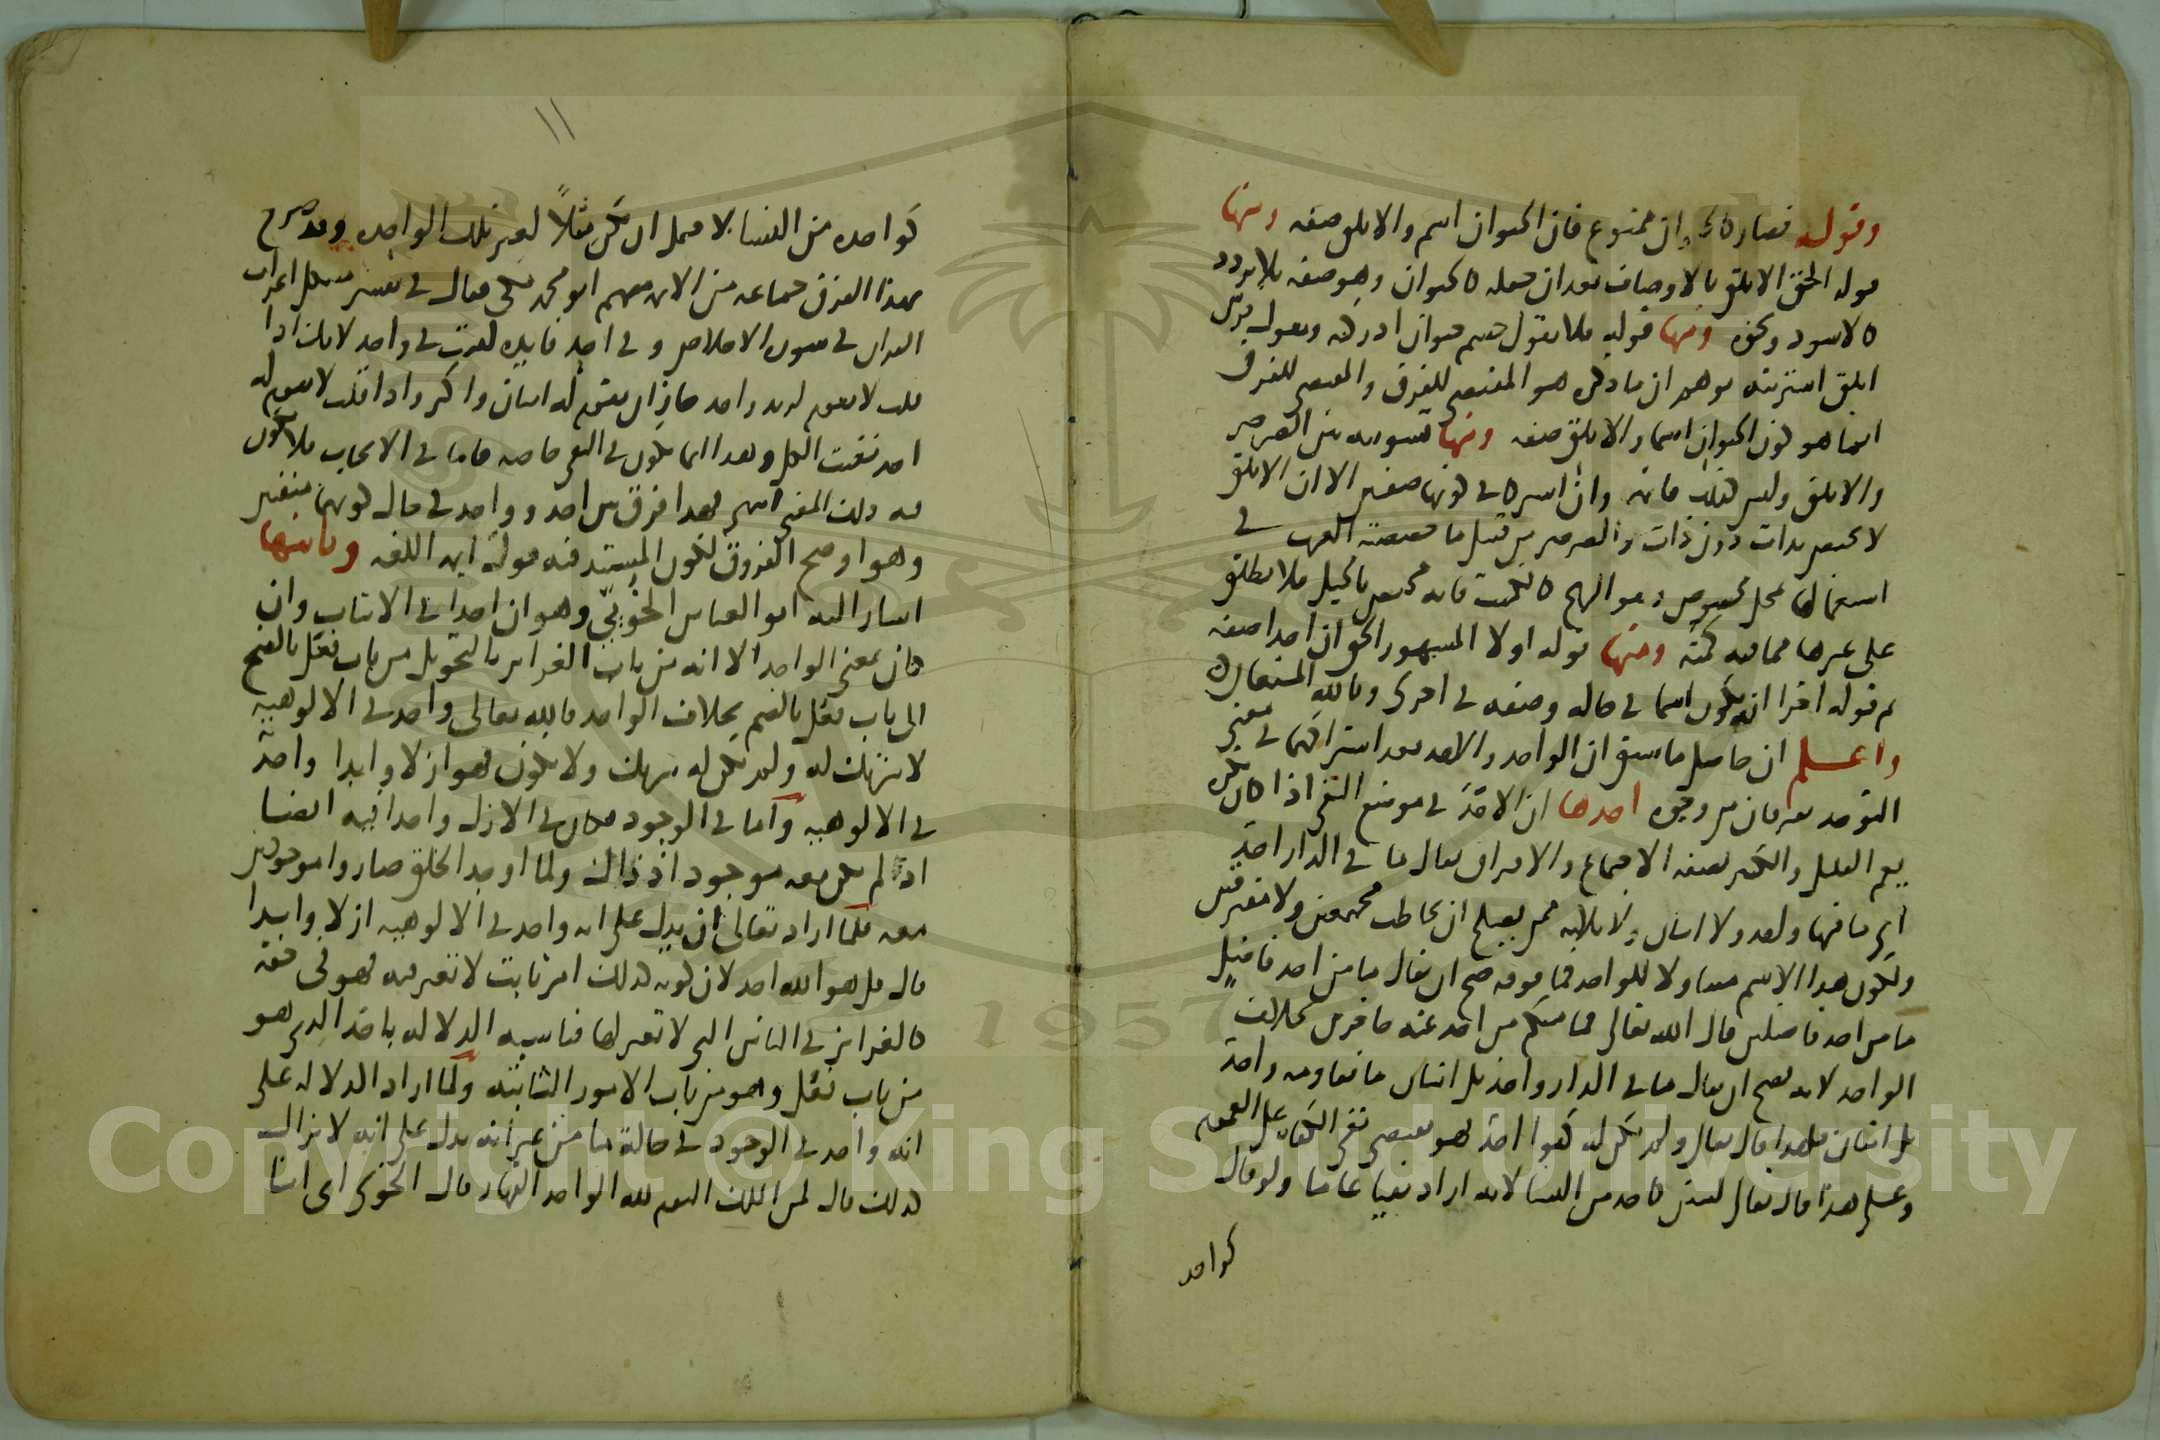 وقوله فصار كالحيوان ممنوع فان الحيوان اسم والابلق صفه ومنها
قوله الحق الابلق بالاوصاف بعد ان جعله كالحيوان وهو صفه بلا تردد
كالاسود ونحوه ومنها قوله فلا يقول جسم حيوان ادركته ويقول فرس
ابلق اشتريته يوهم ان ما ذكره هو المقتضي للفرق والمقتضي للفرق
انما هو كون الحيوان اسما والابلق صفه ومنها تسويته بين
والابلق وليس كذلك فانه وان اشتركا في كونهما صفتين الا ان الابلق
لا يختص بذات دون ذات من قبيل ما خصصته العرب في
استعمالها بمحل مخصوص كالكميت فانه مختص بالخيل فلا يطلق
على غيرها مما فيه كمتة ومنها قوله اولا المشهور الحق ان احدا صفه
ثم قوله اخرا انه يكون اسما في حاله وصفه في اخرى وبالله المستعان
واعلم ان حاصل ما سبق ان الواحد والاحد بعد اشتراكهما في معنى
التوحد يفترقان من وجوه احدها ان الاحد في موضع النفي اذا كان نكره
يعم القليل والكثير بصفه الاجتماع والافتراق يقال ما في الدار احد
اي ما فيها واحد ولا اثنان ولا ثلاثه ممن يصلح ان يخاطب مجتمعين ولا مفترقين
ولكون هذا الاسم متناولا للواحد فما فوقه صح ان يقال ما من احد فاضل
ما من احد فاضلين قال الله تعالى فما منكم من احد عنه حاجزين بخلاف
الواحد لانه يصح ان يقال ما في الدار واحد بل اثنان ما يقاومه واحد
بل اثنان فلهذا قال تعالى ولم يكن له كفوا احد فهو يقتضي نفي الكفاء على العموم
وعلى هذا قال تعالى لستن كاحد من النسا لانه اراد نفيا عاما ولو قال
كواحد
١١
كواحده من النسا لاحتمل ان يكن مثلاً لغير تلك الواحده وقد صرح
بهذا الفرق جماعه من الايمه منهم ابو محمد مكي فقال في تفسير مشكل اعراب
القران في سورة الاخلاص وفي احد فايده ليست في واحد لانك اذا
قلت لا يقوم لزيد واحد جاز ان يقوم له اثنان واكثر واذا قلت لا يقوم له
احد نفيت الكل وهذا انما يكون في النفي خاصه فاما في الايجاب فلا يكون
فيه ذلك المعنى انتهى فهذا فرق بين احد وواحد في حال كونهما منفيين
وهو اوضح الفروق لكون المستند فيه قول ايمه اللغه وثانيها
اشار اليه ابو العباس الخويي وهو ان احدا في الاثبات وان
كان بمعنى الواحد الا انه من باب الغرايز بالتحويل من باب فعل بالفتح
الى باب فعل بالضم بخلاف الواحد فالله تعالى واحد في الالوهيه
لا شريك له ولم يكن له شريك ولا يكون فهو ازلا وابدا واحد
في الالوهيه واما في الوجود فكان في الازل واحدا فيه ايضا
اذ لم يكن معه موجود اذ ذاك ولما اوجد الخلق صاروا موجودين
معه فلما اراد تعالى ان يدل على انه واحد في الالوهيه ازلا وابدا
قال قل هو الله احد لان كونه كذلك امر ثابت لا تغير فيه فهو في حقه
كالغرايز في الناس التي لا تغير لها فناسبه الدلاله باحد الذي هو
من باب فعل وهو من باب الامور الثابته ولما اراد الدلاله على
انه واحد في الوجود في حالة ما من غير انه يدل على انه لا يزال
كذلك قال لمن الملك اليوم لله الواحد القهار قال الخويي اي انا